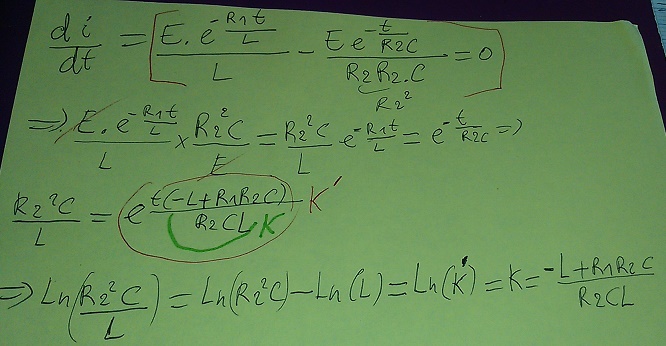 di/dt = [E.e^(-R1t/L)/L - Ee^(-t/R2C)/(R2R2.C) = 0]
R2²
=>. E.e^(-R1t/L)/L × R2²C/E = R2²C/L e^(-R1t/L) = e^(-t/R2C) =>
R2²C/L = e^(t(-L+R1R2C)/R2CL) K K'
=> Ln(R2²C/L) = Ln(R2²C) - Ln(L) = Ln(K') = K = (-L+R1R2C)/R2CL